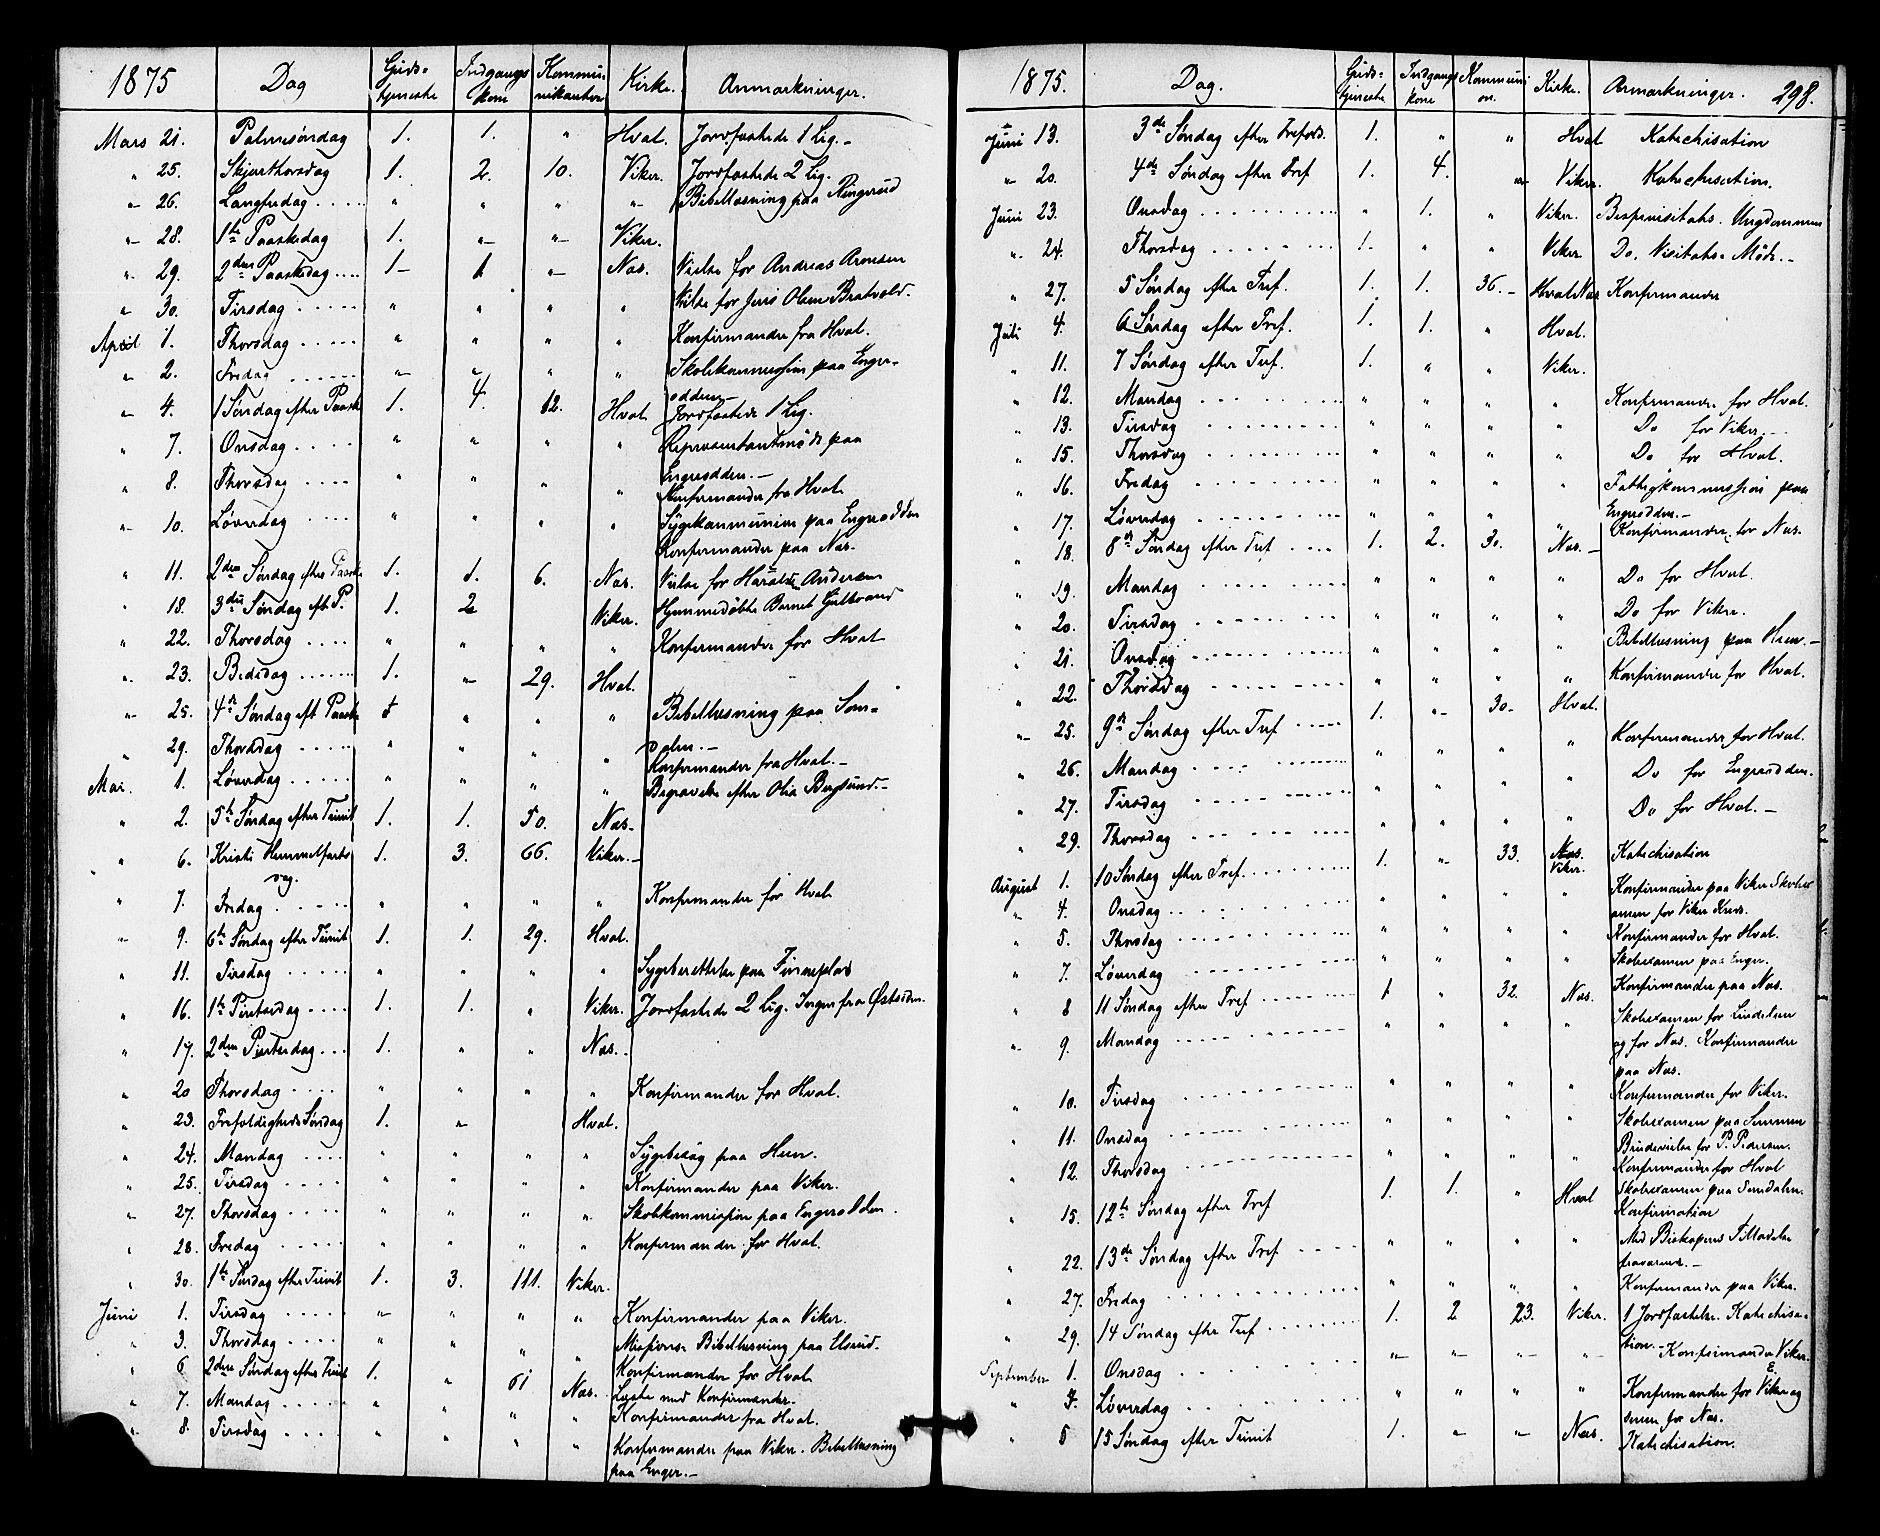 1875 Dag Guds- Indgangs Kommu- Kirke. Anmærkninger.
tjeneste kone nikanter
Mars 21. Palmesøndag 1. 1. " Hval. Jordfæstede 1 Lig.-
" 25. Skjærthorsdag 1. 2. 10. Viker. Jordfæstede 2 Lig.
" 26. Langfredag..... " " " " Bibellæsning paa Ringerud
" 28. 1te Paaskedag 1. " " Viker.
" 29. 2den Paaskedag.... 1 1 " Næs. Vielse for Andreas Aronsen
" 30. Tirsdag..... " " " " Vielse for Jens Olsen Bratvold.
April 1. Thorsdag..... " " " " Konfirmander fra Hval.
" 2. Fredag...... " " " " Skolekommission paa Enger-
odden
" 4. 1 Søndag efter Paaske 1. 4. 12. Hval Jordfæstede 1 Lig.
" 7. Onsdag..... " " " " Repræsentantmøde paa
Engerodden.-
" 8. Thorsdag.... " " " " Konfirmander fra Hval
" 10. Løverdag.... " " " " Sygekommunion paa Engerodden
Konfirmander paa Næs.
" 11. 2den Søndag efter Paaske 1. 1. 6. Næs. Vielse for Harald Andersen
" 18. 3die Søndag eft P. 1. 2 Viker. Hjemmedøbte Barnet Gulbrand
" 22. Thorsdag.... " " " " Konfirmander for Hval
" 23. Bededag...... 1. " 29. Hval.
" 25. 4de Søndag eft Paaske 1 " " " Bibellæsning paa Søn-
dalen.-
" 29. Thorsdag..... " " " " Konfirmander fra Hval.-
Mai. 1. Løverdag..... " " " " Begravelse efter Olia Bergsund.-
" 2. 5te Søndag efter Trinit 1. 1. 50. Næs.
" 6. Kristi Himmelfarts 1. 3. 66. Viker.-
dag.
" 7. Fredag..... " " " " Konfirmander for Hval
" 9. 6te Søndag efter Trinit 1. 1. 29. Hval.
" 11. Tirsdag..... " " " " Sygeberettelse paa Finneplads
" 16. 1te Pintsedag.... 1. 1. " Viker. Jordfæstede 2 Lig. Inger fra Østsiden.
" 17. 2den Pintsedag... 1. " " Næs.
" 20 Thorsdag.... " " " " Konfirmander for Hval.
" 23. Trefoldigheds Søndag 1. " Hval.
" 24. Mandag.... " " " " Sygebesøg paa Hen.
" 25. Tirsdag.... " " " " Konfirmander paa Viker.
" 27. Thorsdag.... " " " " Skolekommission paa Engerodden.
" 28. Fredag.... " " " " Konfirmander for Hval.
" 30. 1te Søndag efter Trinit 1. 3. 111. Viker.
Juni 1. Tirsdag..... " " " " Konfirmander paa Viker.
" 3. Thorsdag.... " " " " Missions- Bibellæsning paa Elsrud.
" 6 2den Søndag efter Trinit 1. " 61 Næs. Konfirmander for Hval
" 7. Mandag.... " " " Læste med Konfirmander.
Konfirmander fra Hval.
" 8. Tirsdag.... " " " " Konfirmander paa Viker. Bibellæsning
paa Enger.-
1875. Dag. Guds- Indgangs Kommuni Kirke. Anmærkninger. 298.
tjeneste kone on.
Juni 13. 3de Søndag efter Trefold. 1. " " Hval Katechisation
" 20. 4de Søndag efter Tref 1. 4. " Viker. Katechisation.
Juni 23. Onsdag......... " 1. " Viker. Bispevisitats. Ungdommen
" 24. Thorsdag....... 1. " " Viker. Do. Visitats-Møde.-
" 27. 5 Søndag efter Tref. 1. 1. 36.- Hval Næs Konfirmander
Juli 4. 6 Søndag efter Tref. 1. 1. " Hval.
" 11. 7 Søndag efter Tref. 1. " " Viker.
" 12. Mandag......... " " " " Konfirmander for Hval.
" 13. Tirsdag......... " " " " Do for Viker.-
" 15. Thorsdag........ " " " " Do for Hval.
" 16. Fredag......... " " " " Fattigkommission paa
Engerodden.-
" 17. Løverdag....... " " " " Konfirmander for Næs.
" 18. 8de Søndag efter Tref.... 1. 2. 30. Næs.-
" 19. Mandag....... " " " " Do for Hval.
" 20. Tirsdag....... " " " " Do for Viker.
" 21. Onsdag........ " " " " Bibellæsning paa Hen.-
" 22. Thorsdag....... " " " " Konfirmander for Hval.
" 25. 9de Søndag efter Tref.... 1. " 30- Hval.
" 26. Mandag........ " " " " Konfirmander for Hval.
" 27. Tirsdag....... " " " " Do for Engerodden.
" 29. Thorsdag....... " " " " Do for Hval.-
August 1. 10 Søndag efter Tref........ 1. " 33. Næs. Viker. Katechisation
" 4. Onsdag......... " " " " Konfirmander paa Viker Skoleex
amen for Viker Kreds.
" 5. Thorsdag........ " " " " Konfirmander for Hval.
Skolexamen paa Enger.
" 7. Løverdag........ " " " " Konfirmander paa Næs.
" 8 11 Søndag efter Tref....... 1 " 32. Næs.
" 9. Mandag........ " " " " Skolexamen for Lindelien
og for Næs. Konfirmander
paa Næs.
" 10. Tirsdag....... " " " " Konfirmander for Viker.
" 11. Onsdag........ " " " " Skolexamen paa Semmen
Brudevielse for P. Pedersen.
" 12. Thorsdag....... " " " " Konfirmander for Hval
Skolexamen paa Søndalen.
" 15. 12te Søndag efter Tref 1. 1. " Hval Konfirmation
" 22. 13de Søndag efter Tref.... " " " " Med Biskopens Tilladelse
fraværende.-
" 27. Fredag.......... " " " " Konfirmander paa Viker.
" 29. 14 Søndag efter Tref....... 1. 2 23. Viker. 1 Jordfæstelse. Katechisa-
tion.-
September 1. Onsdag.. " " " " Konfirmander Viker.
" 4. Løverdag....... " " " " Konfirmander for Viker og
senere for Næs.
" 5 15 Søndag efter Trinit 1. " " Næs. Katechisation.